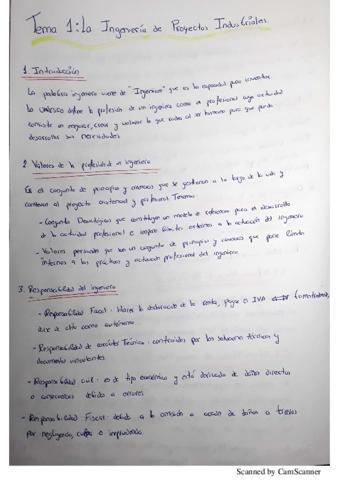 Tema 1: La Ingeniería de Proyectos Industriales.
1. Introducción
La palabra ingeniero viene de "Ingenium" que es la capacidad para inventar.
La UNESCO define la profesión de un ingeniero como el profesional cuya actividad
consiste en organizar, crear y valorar lo que rodea al ser humano para que pueda
desarrollar sus necesidades
2. Valores de la profesión de un ingeniero
Es el conjunto de principios y creencias que se gestionan a lo largo de la vida y
conllevan al proyecto existencial y profesional. Tenemos:
- Conjunto Deontológicos que constituyen un modelo de referencia para el desarrollo
de la actividad profesional e impone límites externos a la actuación del ingeniero
- Valores personales que son un conjunto de principios y creencias que pone límites
internos a las prácticas y actuación profesional del ingeniero.
3. Responsabilidad del ingeniero
- Responsabilidad Fiscal: Hacer la declaración de la renta, pagar el IVA
darse de alta como autónomo
- Responsabilidad de carácter Técnica: por las soluciones técnicas y
documentos
- Responsabilidad civil: es de tipo económico y está derivada de daños directos
o debido a errores
- Responsabilidad Fiscal: debido a la omisión o acción de daños a terceros
por negligencia, culpa o imprudencia.
Scanned by CamScanner